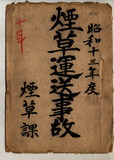 昭和十三年度
煙草運送事故
煙草課